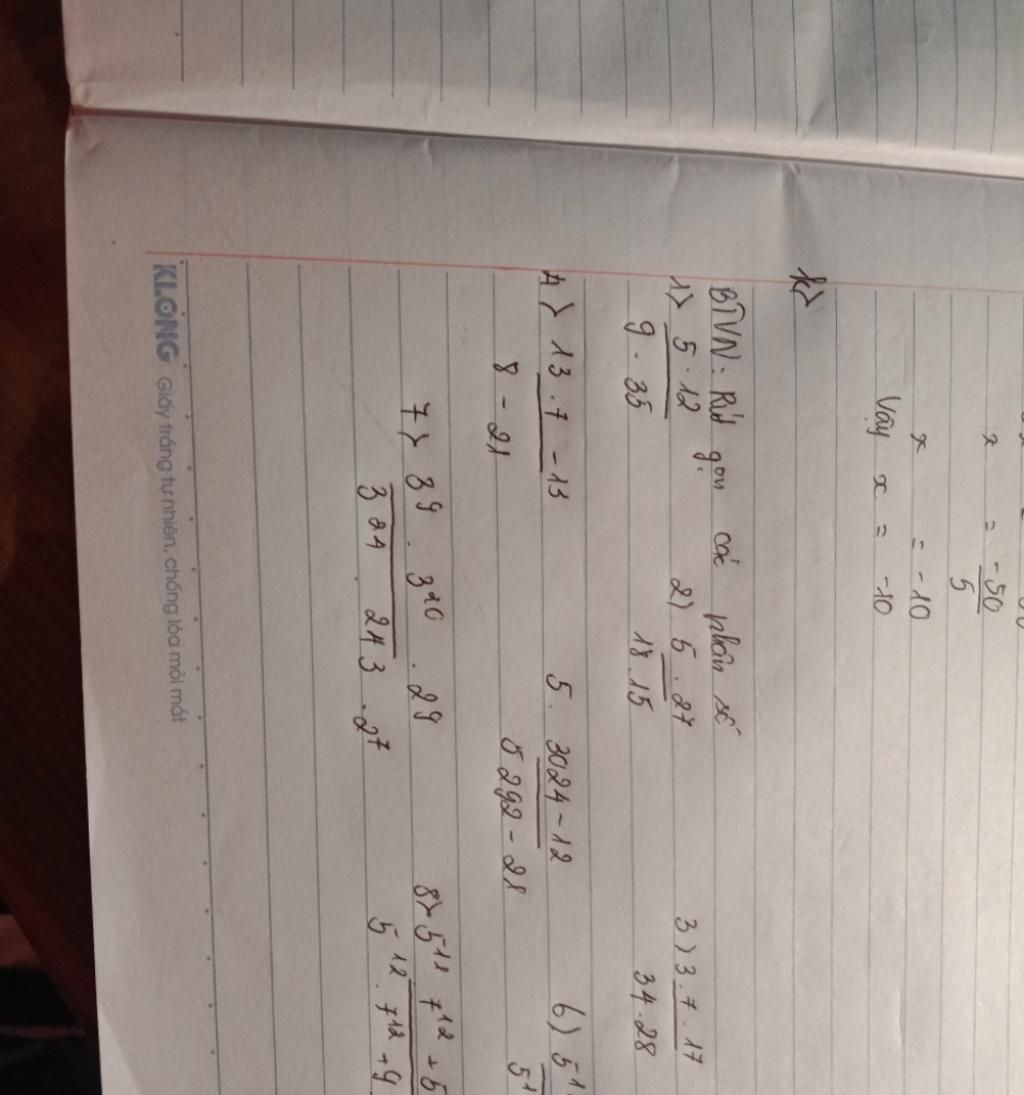 x = -50/5
x = -10
Vậy x = -10
k>
BTVN: Rút gọn các phân số
1> 5.12/9.35 2) 5.27/18.15 3) 3.7.17/34.28
4> 13.7-13/8-21 5. 3024-12/5292-28 6) 5
7> 3⁹.3²⁰.2⁹/3²⁴ 243.2⁷ 8> 5¹¹ 7¹² + 5/5¹².7¹² + 9
KLONG Giấy trắng tự nhiên, chống lóa mỏi mắt